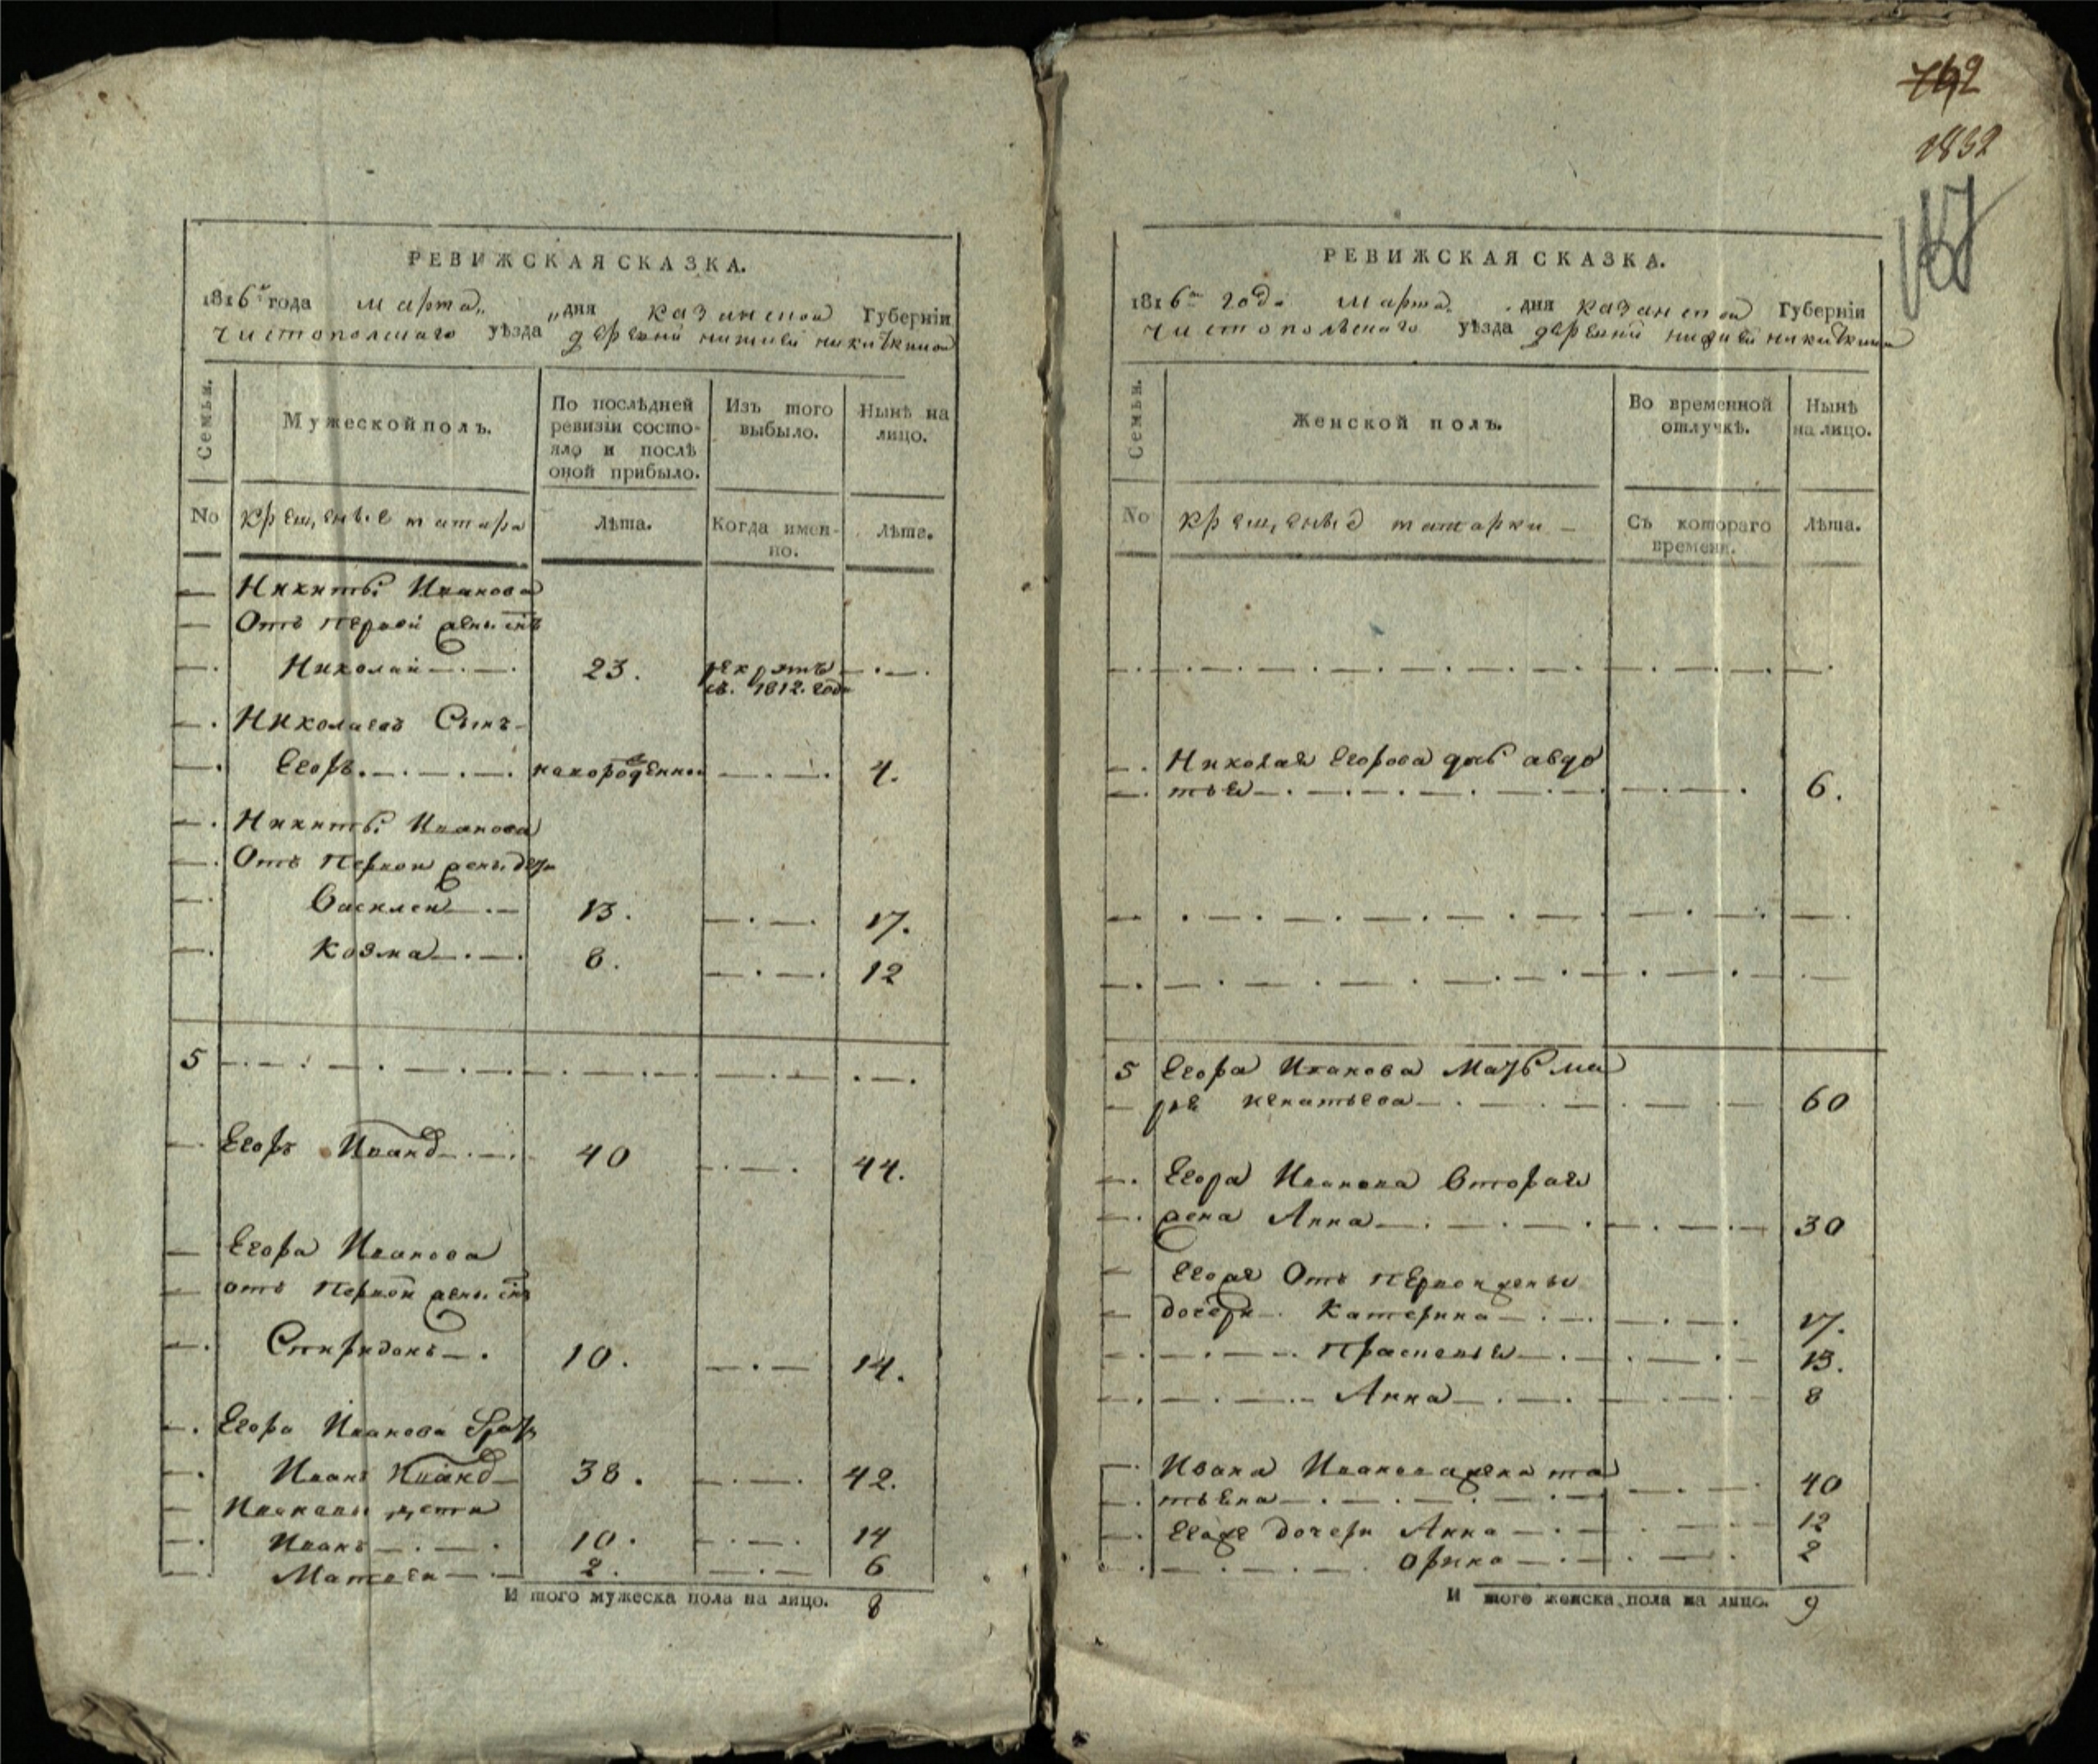 РЕВИЖСКАЯ СКАЗКА.
1816 года марта „ дня казанской Губерніи
чистополскаго уѣзда деревни нижней никиткиной
Семьи.
Мужеской полъ.
По послѣдней ревизіи состояло и послѣ оной прибыло.
Изъ того выбыло.
Нынѣ на лицо.
No
крещеные татара
Лѣта.
Когда именно.
Лѣта.
Никиты Иванова
Отъ первой жены снъ
Николай 23. рекрутъ
въ 1812. годе
Николаевъ Сынъ
Егоръ новорожденной 4.
Никиты Иванова
Отъ Первой жены дети
Василей 13. 17.
Козма 8. 12
5
Егоръ Иванов 40 44.
Егора Иванова
отъ Первой жены снъ
Спиридонъ 10. 14.
Егора Иванова брат
Иванъ Иванов 38. 42.
Ивановы дети
Иванъ 10. 14
Матвей 2. 6
И того мужеска пола на лицо. 8
742
1832
167
РЕВИЖСКАЯ СКАЗКА.
1816 года марта дня казанской Губерніи
чистопольскаго уѣзда деревни нижней никиткиной
Семьи.
Женской полъ.
Во временной отлучкѣ.
Нынѣ на лицо.
No
крещеные татарки
Съ котораго времени.
Лѣта.
Николая Егорова дочь авдо
тья 6.
5 Егора Иванова Мать ма
рья игнатьева 60
Егора Иванова Вторая
жена Анна 30
Егоре Отъ первой жены
дочери Катерина 17.
Прасковья 13.
Анна 8
Ивана Иванова жена та
тьяна 40
Егоже дочери Анна 12
Орина 2
И того женска пола на лицо. 9